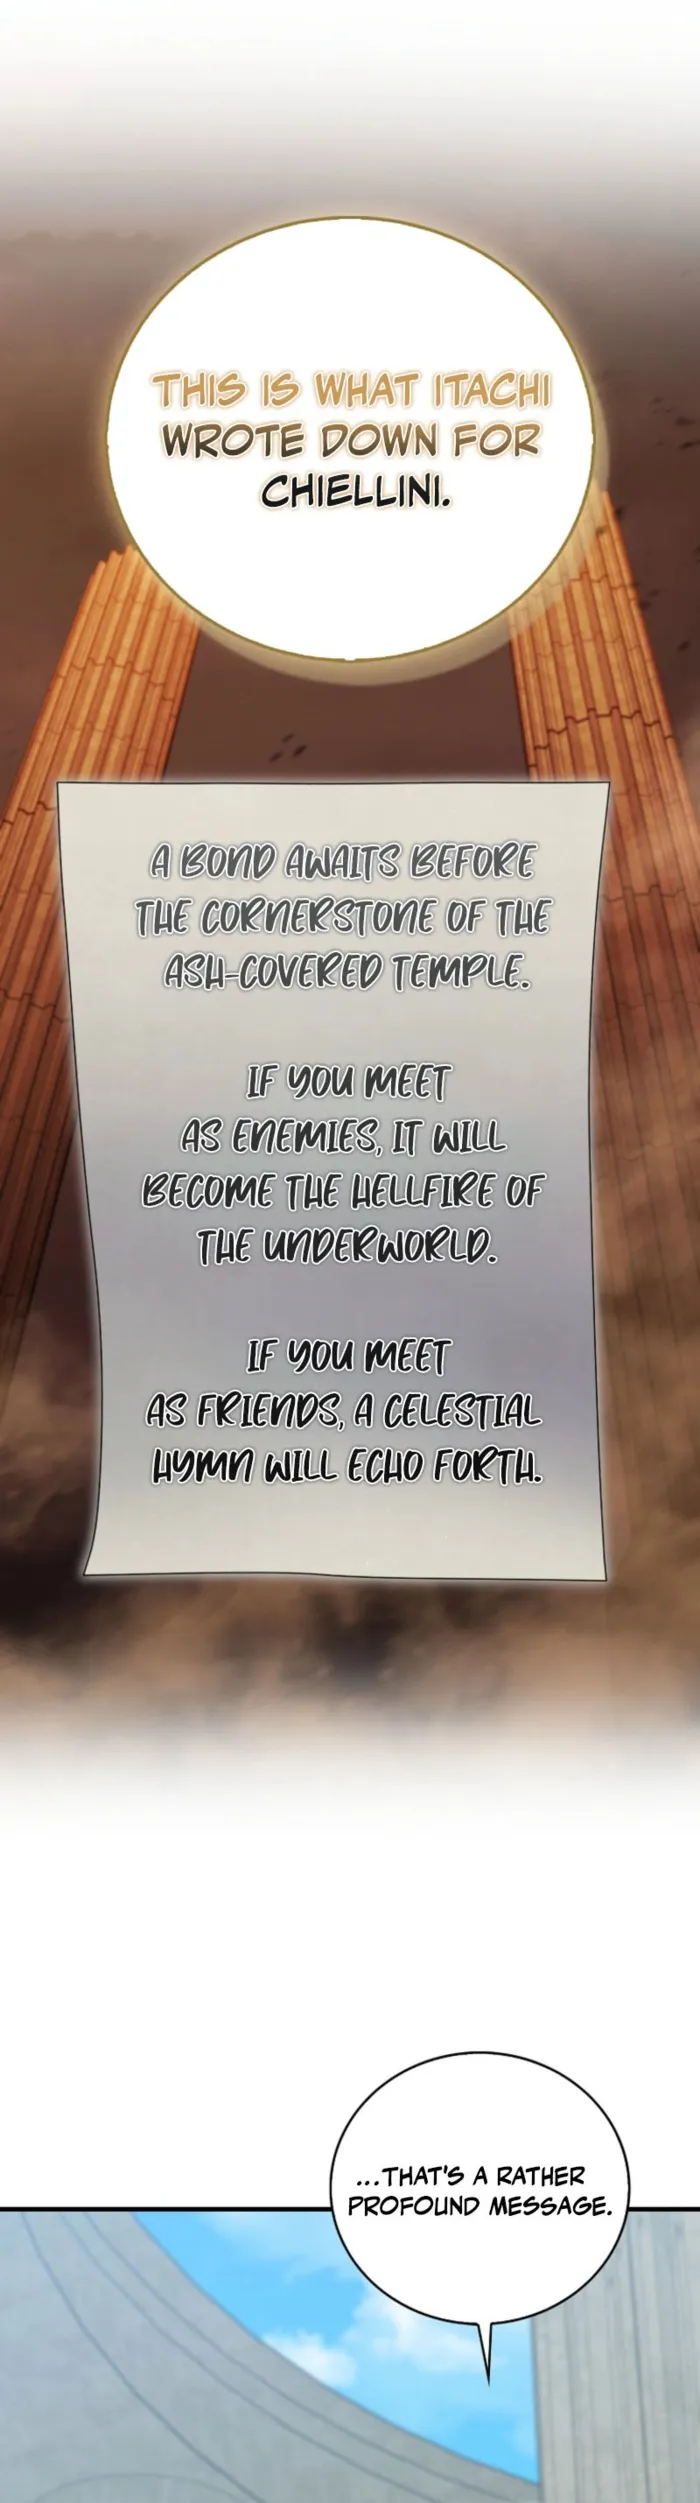 THIS IS WHAT ITACHI
WROTE DOWN FOR
CHIELLINI.
A BOND AWAITS BEFORE
THE CORNERSTONE OF THE
ASH-COVERED TEMPLE.
IF YOU MEET
AS ENEMIES, IT WILL
BECOME THE HELLFIRE OF
THE UNDERWORLD.
IF YOU MEET
AS FRIENDS, A CELESTIAL
HYMN WILL ECHO FORTH.
...THAT'S A RATHER
PROFOUND MESSAGE.